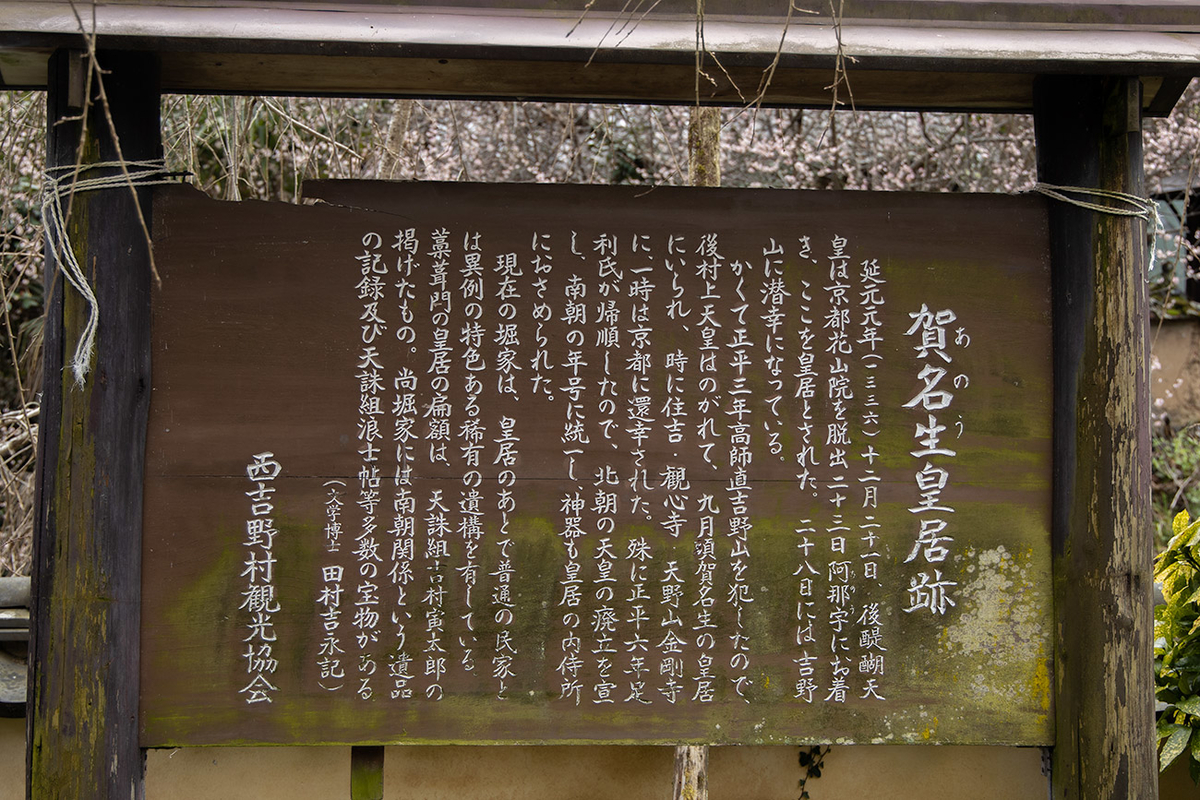 賀名生皇居跡
あのう
延元元年(一三三六)十二月二十一日、後醍醐天
皇は京都花山院を脱出二十三日阿那宇にお着
き、ここを皇居とされた。二十八日には吉野
山に潜幸になっている。
かくて正平三年高師直吉野山を犯したので、
後村上天皇はのがれて、九月須賀名生の皇居
にいられ、時に住吉・観心寺・天野山金剛寺
に、一時は京都に還幸された。殊に正平六年足
利氏が帰順したので、北朝の天皇の廃立を宣
し、南朝の年号に統一し、神器も皇居の内侍所
におさめられた。
現在の堀家は、皇居のあとで普通の民家と
は異例の特色ある稀有の遺構を有している。
藁葺門の皇居の扁額は、天誅組吉村寅太郎の
掲げたもの。尚堀家には南朝関係という遺品
の記録及び天誅組浪士帖等多数の宝物がある
(文学博士 田村吉永記)
西吉野村観光協会